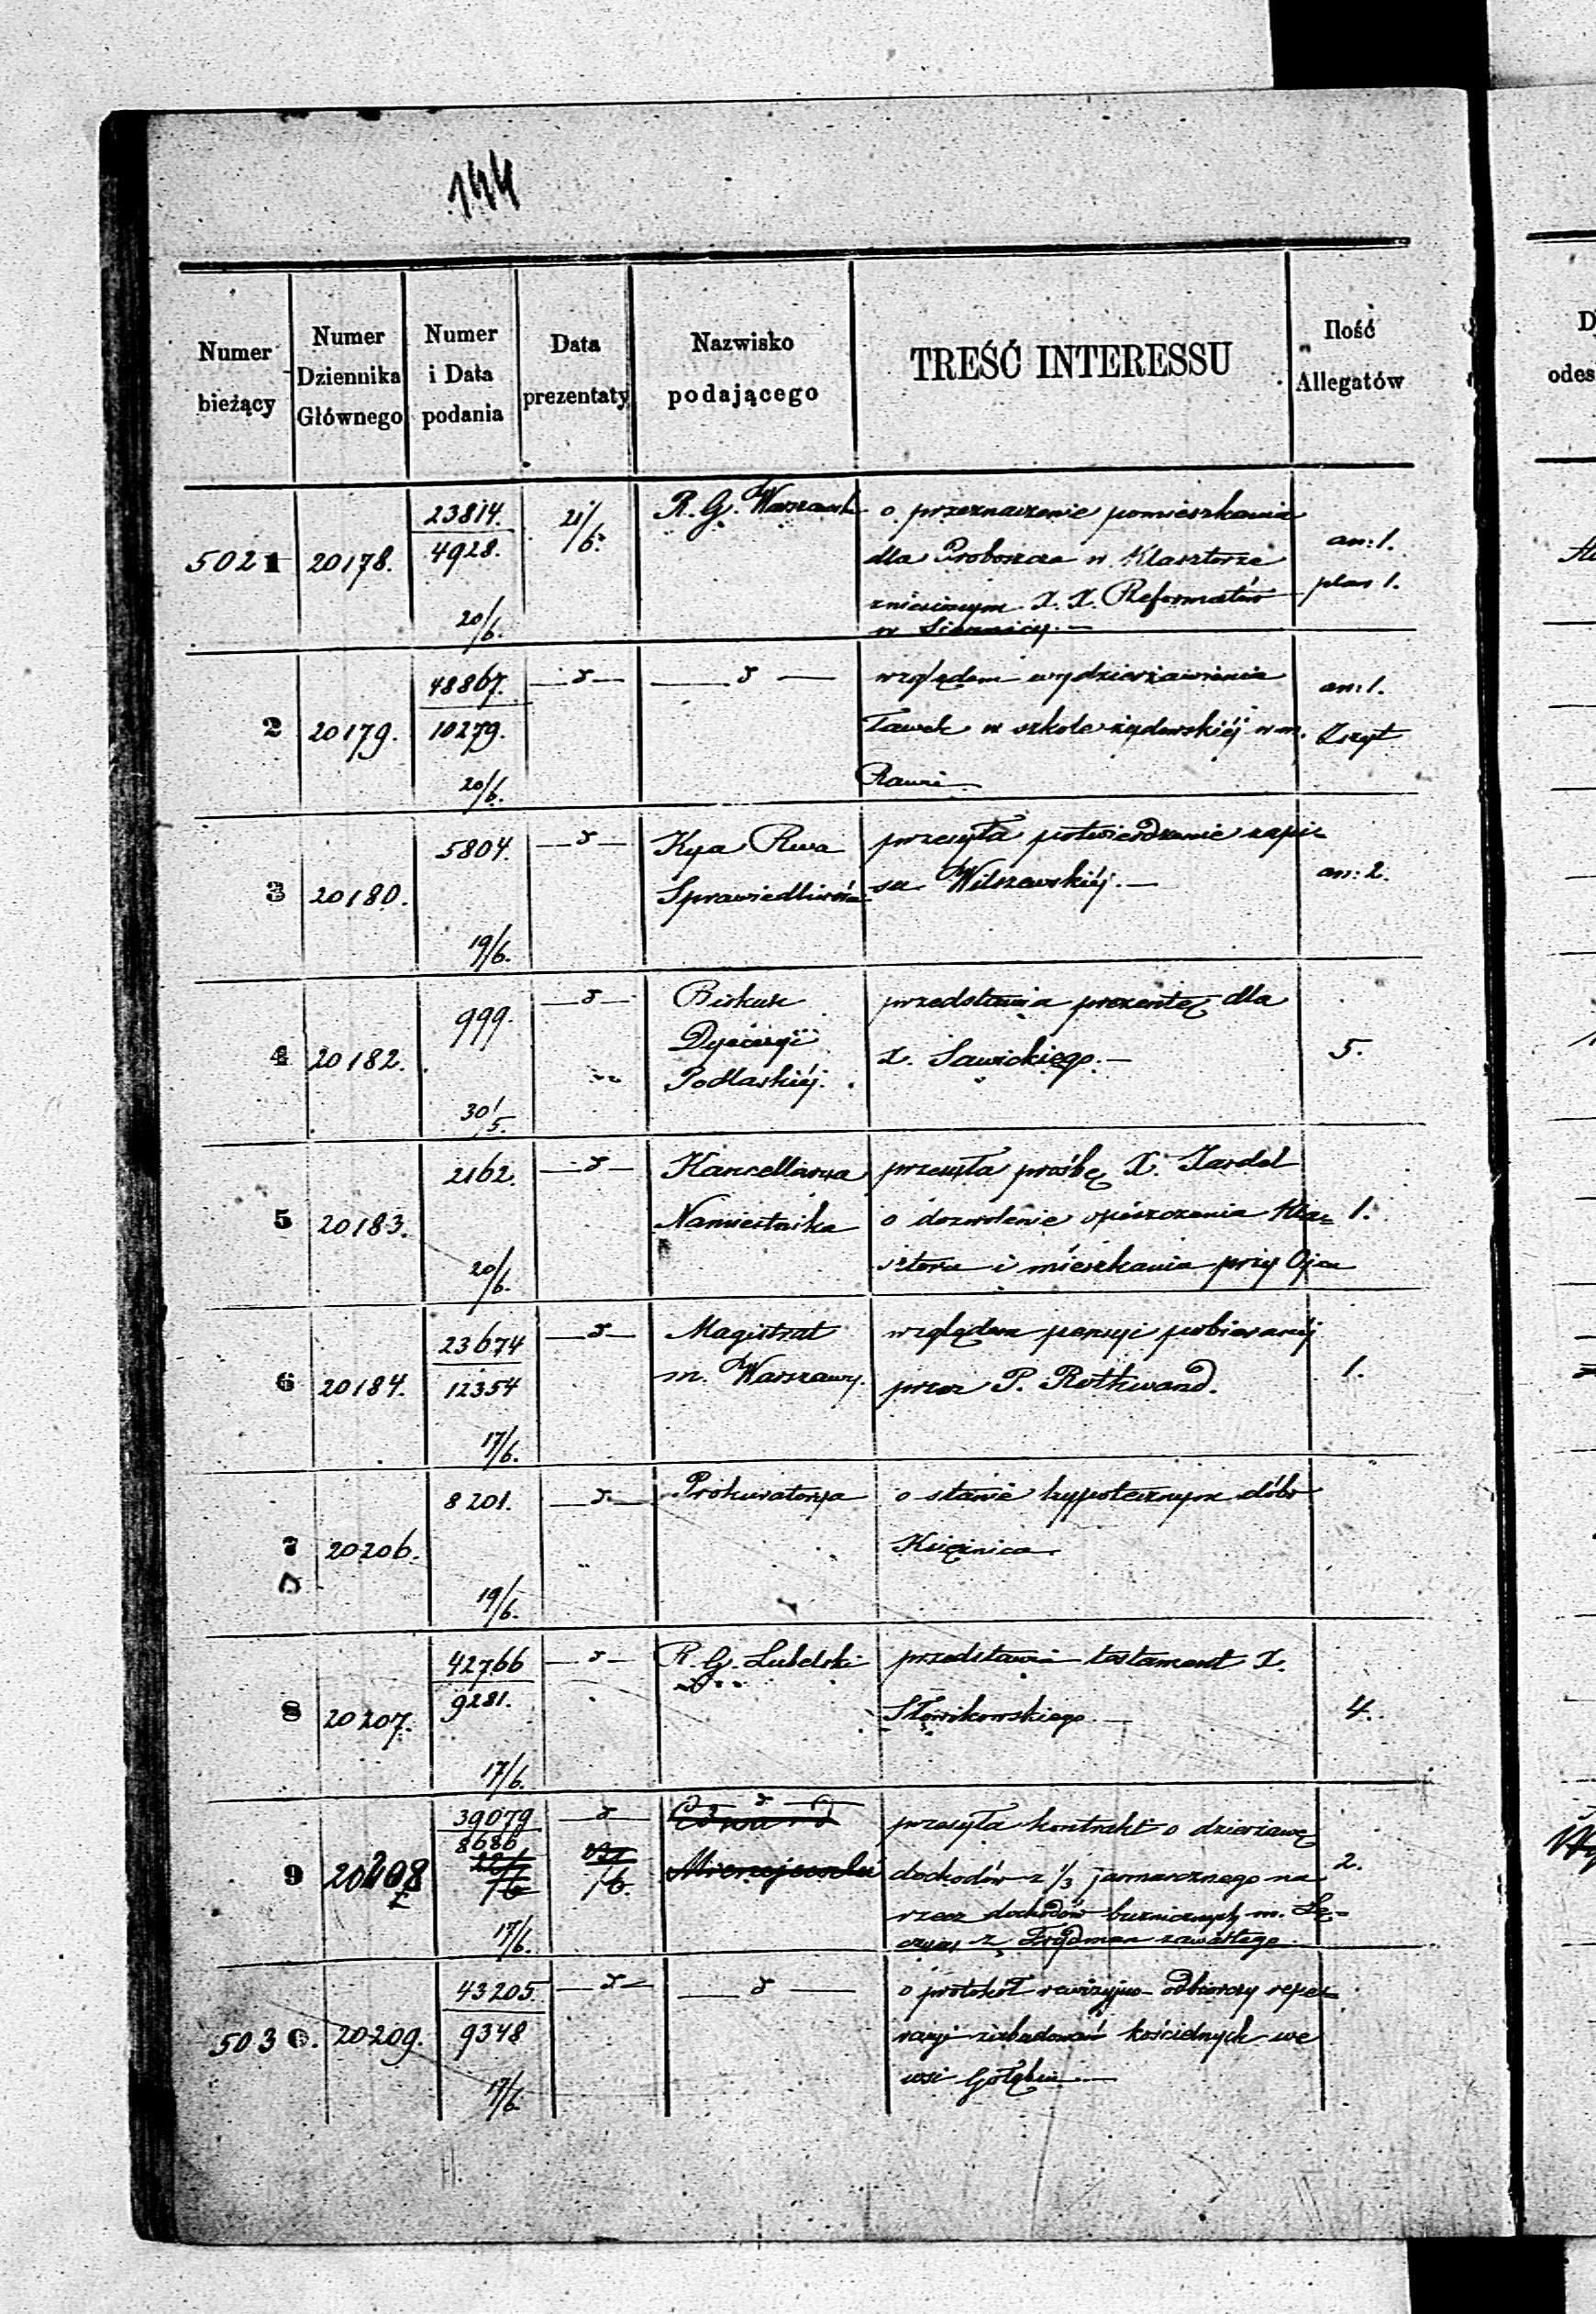 144
Numer bieżący
Numer Dziennika Głównego
Numer i Data podania
Data prezentaty
Nazwisko podającego
TREŚĆ INTERESSU
Ilość Allegatów
5021 20178. 23814. 4928. 20/6. 21/6. R. G. Warszawski
o przeznaczenie pomieszkania
dla Proboszcza w Klasztorze
zniesionym X. X. Reformatów
w Siennicy. —
an: 1.
plan 1.
2 20179. 48867. 10279. 20/6. — d — — d —
względem wydzierżawienia
Ławek w szkole żydowskiéj w m.
Rawie
an: 1.
Zszyt
3 20180. 5804. 19/6. — d —
Kya Rwa
Sprawiedliwości
przesyła potwierdzenie zapi=
su Wilszewskiéj. —
an: 2.
4 20182. 999. 30/5. — d —
Biskup
Dyecezyi
Podlaskiéj.
przedstawia prezentę dla
X. Sawickiego. —
5.
5 20183. 2162. 20/6. — d —
Kancellarya
Namiestnika
przesyła prośbę X. Kardel
o dozwolenie opuszczenia Kla=
sztoru i mieszkania przy Ojcu
1.
6 20184. 23674 12354 17/6. — d —
Magistrat
m. Warszawy.
względem pensyi pobieranéj
przez P. Rothwand.
1.
7 20206. 8201. 19/6. — d —
Prokuratorya
o stanie hypotecznym dóbr
Księżnica.
8 20207. 42766 9281. 17/6. — d —
R. G. Lubelski
przedstawia testament X.
Słowikowskiego. —
4.
9 20208 39079 8686 17/6. — d — /6. — d —
Edward
Mierzejewski
przesyła kontrakt o dzierżawę
dochodów z 1/3 jarmarcznego na
rzecz dochodów bużnicznych m. Łę=
czny z Frydman zawartego.
2.
5030. 20209. 43205. 9348 17/6. — d — — d —
o protokół rewizyjno-odbiorczy repe=
racyi zabudowań kościelnych we
wsi Gołębiu —